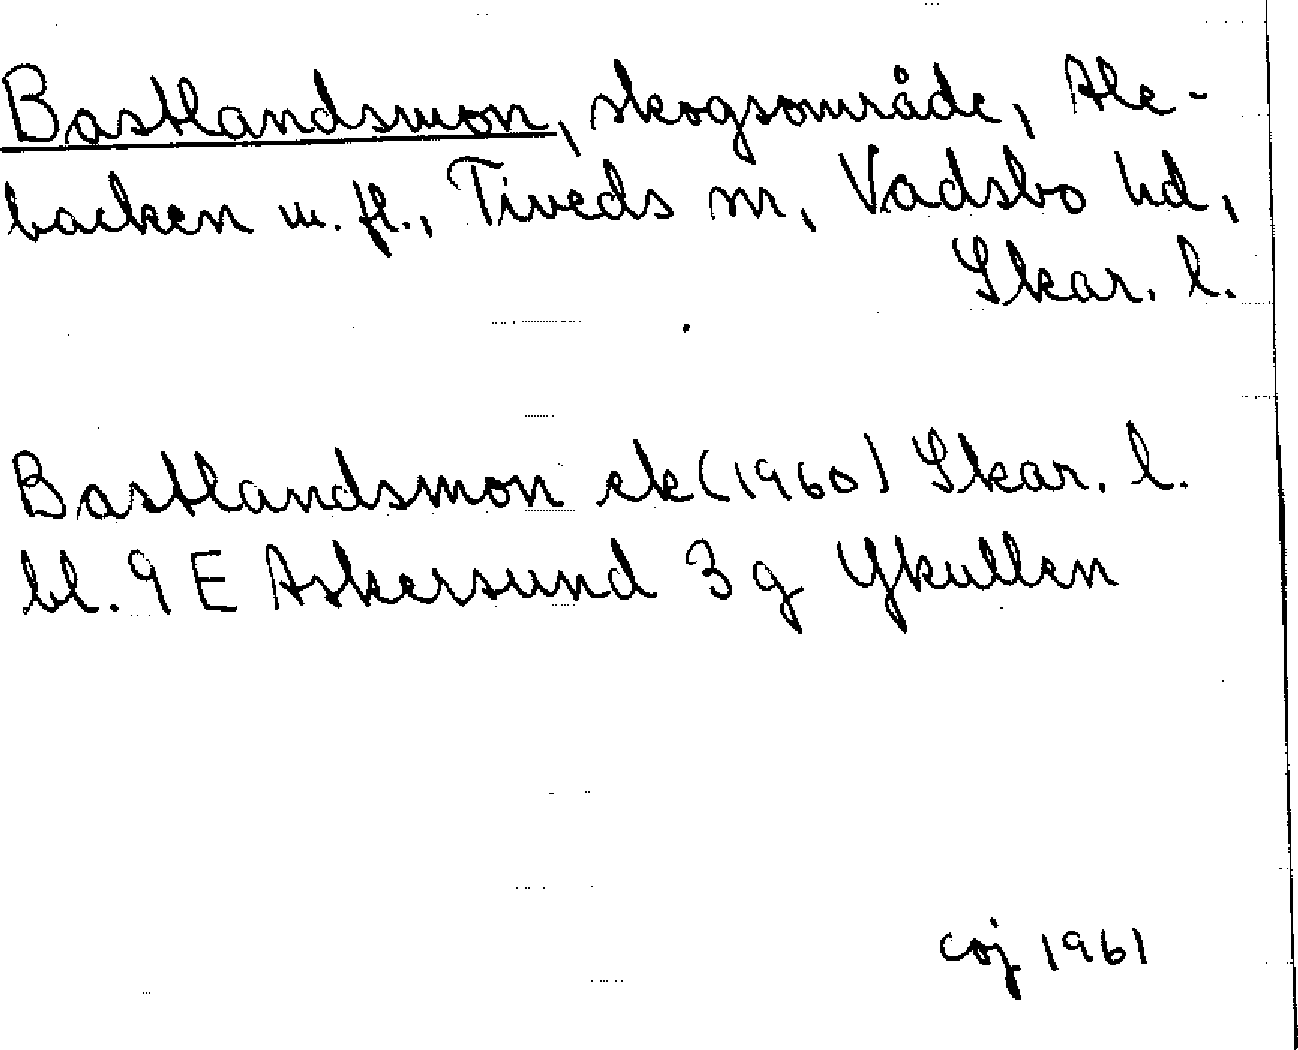 Bastlandsmon, skogsområde, Ale-
backen m. fl., Tiveds sn, Vadsbo hd,
Skar. l.
Bastlandsmon ek (1960) Skar. l.
bl. 9 E Askersund 3 g Ykullen
coj 1961